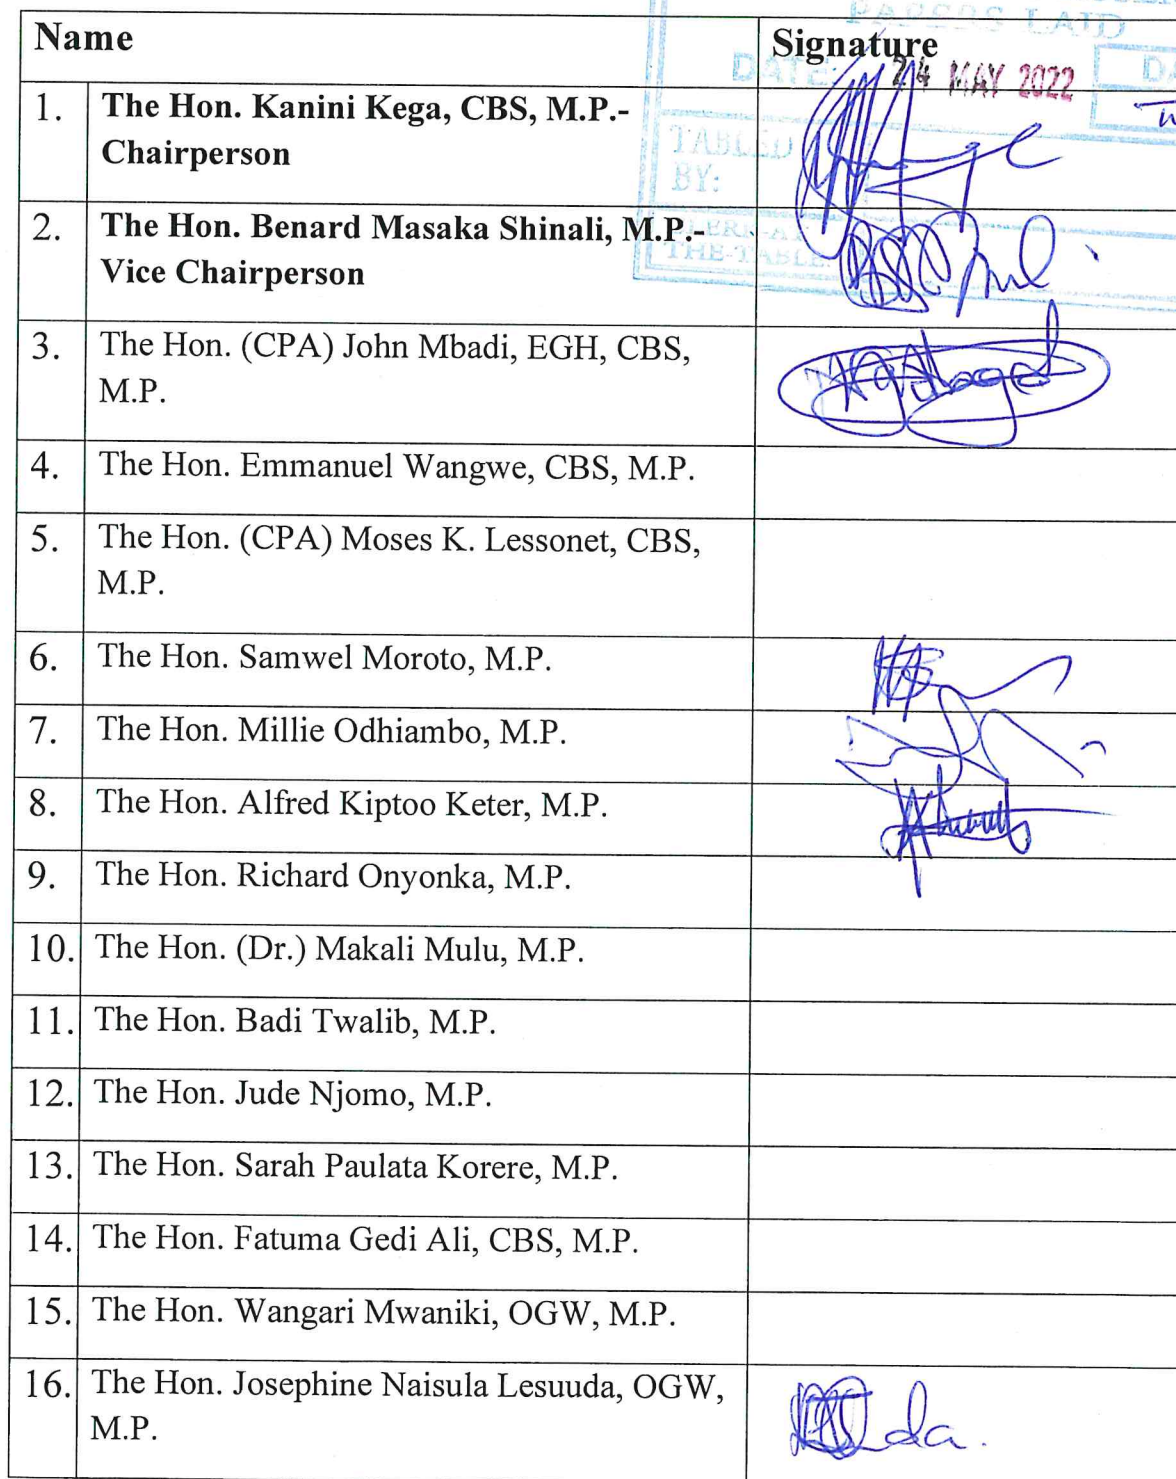 PAPERS LAID
Name
Signature
DATE: 24 MAY 2022
1. The Hon. Kanini Kega, CBS, M.P.-
Chairperson
TABLED
BY:
2. The Hon. Benard Masaka Shinali, M.P.-
Vice Chairperson
CLERK-AT
THE-TABLE:
3. The Hon. (CPA) John Mbadi, EGH, CBS,
M.P.
4. The Hon. Emmanuel Wangwe, CBS, M.P.
5. The Hon. (CPA) Moses K. Lessonet, CBS,
M.P.
6. The Hon. Samwel Moroto, M.P.
7. The Hon. Millie Odhiambo, M.P.
8. The Hon. Alfred Kiptoo Keter, M.P.
9. The Hon. Richard Onyonka, M.P.
10. The Hon. (Dr.) Makali Mulu, M.P.
11. The Hon. Badi Twalib, M.P.
12. The Hon. Jude Njomo, M.P.
13. The Hon. Sarah Paulata Korere, M.P.
14. The Hon. Fatuma Gedi Ali, CBS, M.P.
15. The Hon. Wangari Mwaniki, OGW, M.P.
16. The Hon. Josephine Naisula Lesuuda, OGW,
M.P.